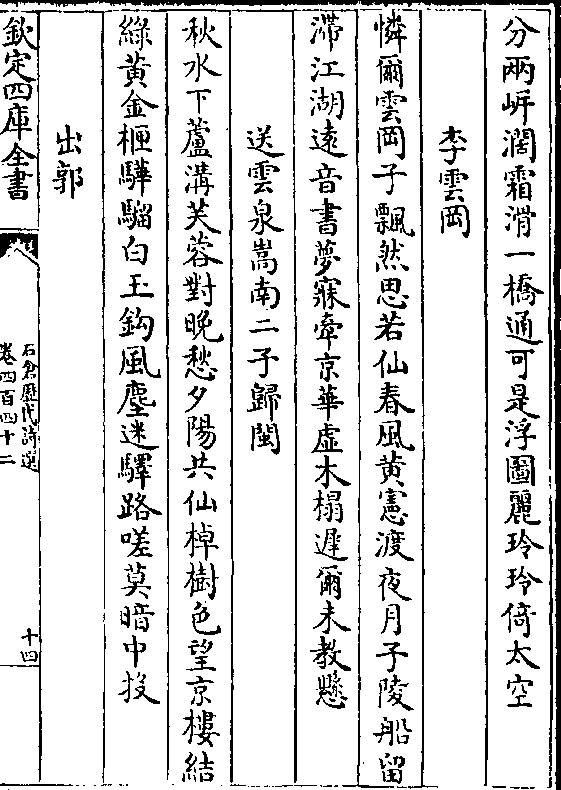 分兩岍濶霜滑一橋通可是浮圖麗玲玲倚太空
李雲岡
憐爾雲岡子飄然思若仙春風黄憲渡夜月子陵船留
滯江湖遠音書夢寐牽京華虚木榻遲爾未教懸
送雲泉嵩南二子歸閩
秋水下蘆溝芙蓉對晚愁夕陽共仙棹樹色望京樓結
綠黄金櫪驊騮白玉鈎風塵迷驛路嗟莫暗中投
出郭
欽定四庫全書
石倉歷代詩選
卷四百四十二
十四